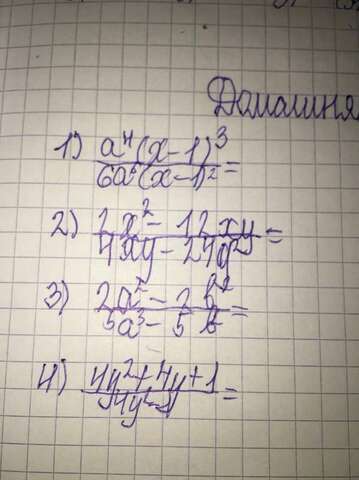 Домашня
1) a⁴(x-1)³
6a⁵(x-1)² =
2) 2x² - 12xy
4xy - 24y² =
3) 2a² - 2b²
5a³ - 5b =
4) 4y² + 4y + 1
4y² - 1 =